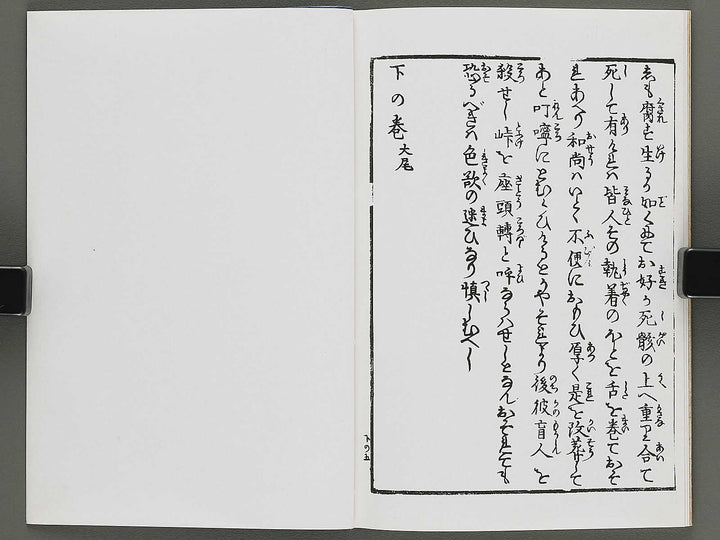 しも腐もせず生るが如くにてお好が死骸の上へ重り合て
死して有ければ皆人その執着のほどを舌を巻ておそ
れあへり和尚はいとゞ不便におもひ厚く是を改葬して
あと叮嚀にとむらひけるとかやそれより後彼盲人を
殺せし峠を座頭轉と呼ならはせしとなんおそれても
恐るべきは色欲の迷ひなり慎しむべし
下の巻大尾
下の五